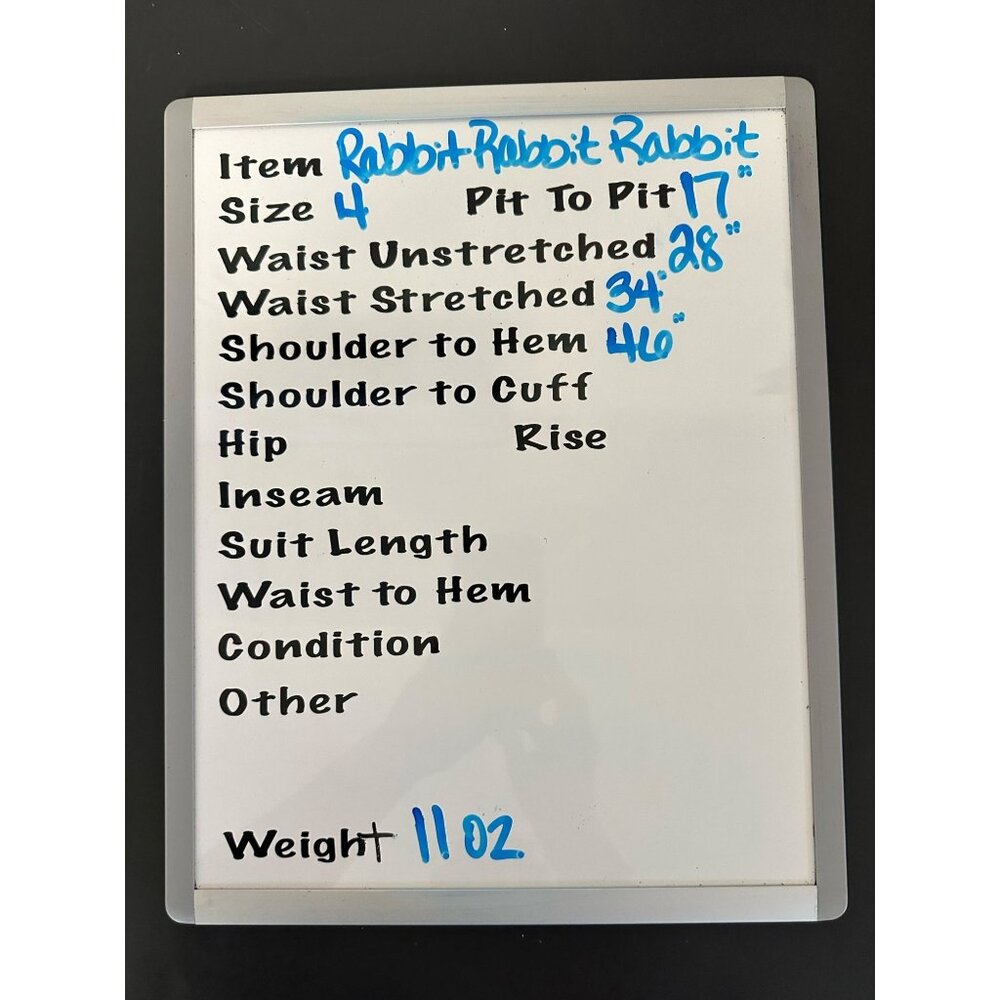 Item Rabbit Rabbit Rabbit
Size 4 Pit To Pit 17"
Waist Unstretched 28"
Waist Stretched 34"
Shoulder to Hem 46"
Shoulder to Cuff
Hip Rise
Inseam
Suit Length
Waist to Hem
Condition
Other
Weight 11 oz.